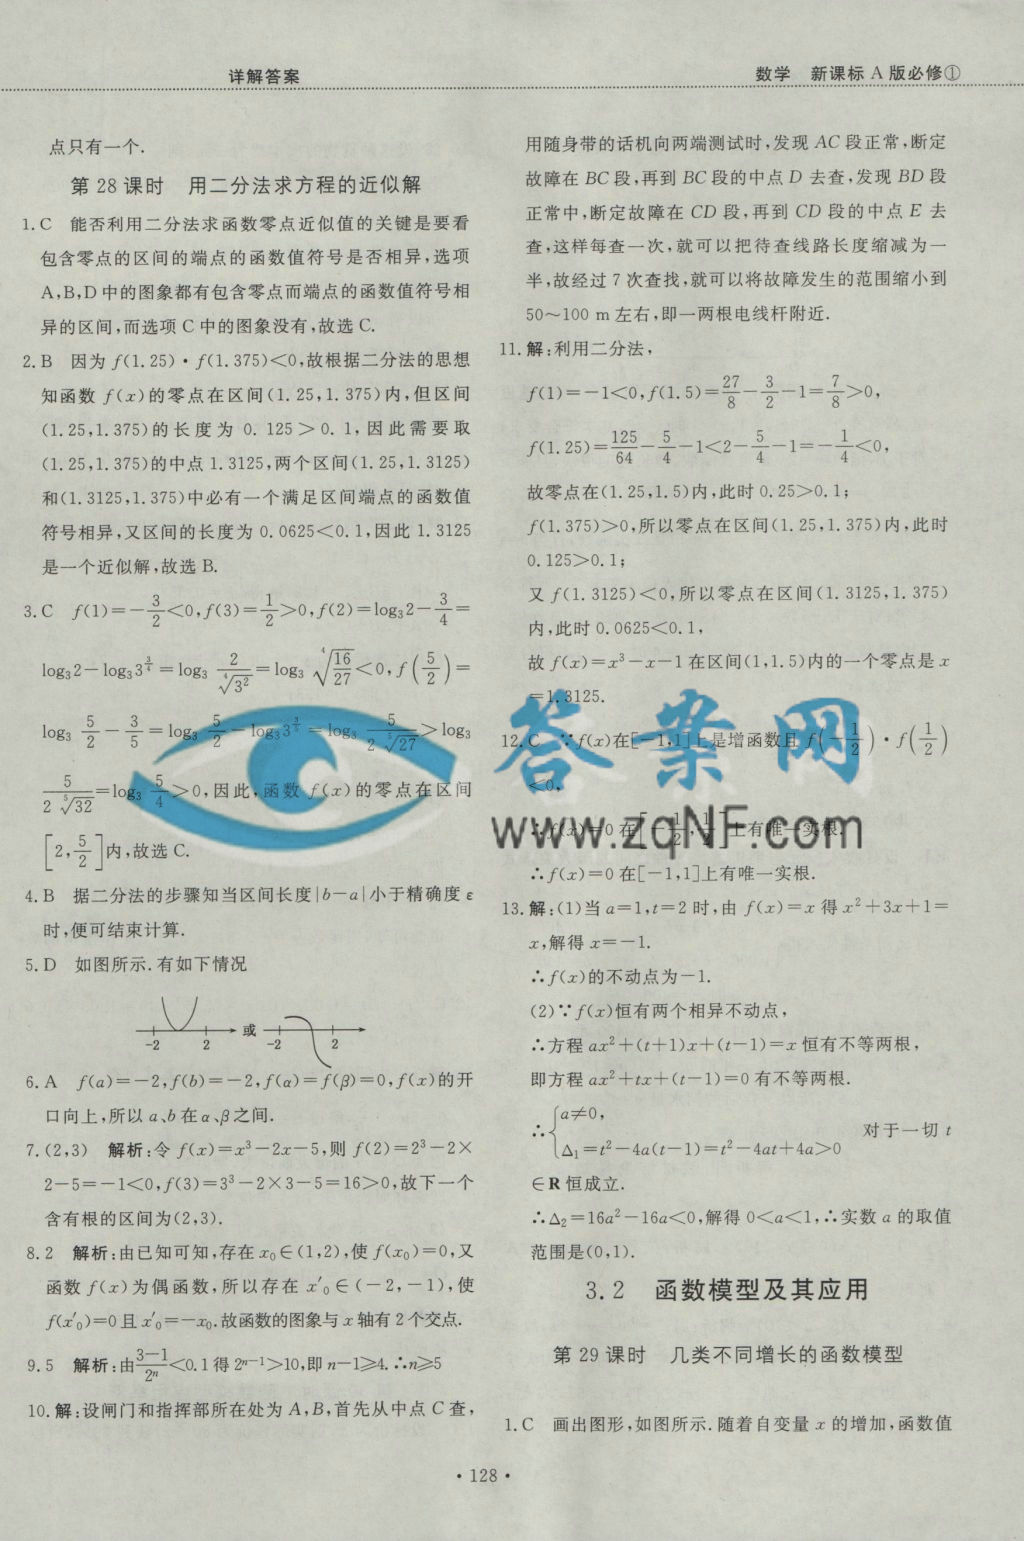 详解答案
数学 新课标 A 版必修①
点只有一个.
第 28 课时 用二分法求方程的近似解
1. C 能否利用二分法求函数零点近似值的关键是要看
包含零点的区间的端点的函数值符号是否相异,选项
A,B,D 中的图象都有包含零点而端点的函数值符号相
异的区间,而选项 C 中的图象没有,故选 C.
2. B 因为 f(1.25)·f(1.375)<0,故根据二分法的思想
知函数 f(x)的零点在区间(1.25,1.375)内,但区间
(1.25,1.375)的长度为 0.125>0.1,因此需要取
(1.25,1.375)的中点 1.3125,两个区间(1.25,1.3125)
和(1.3125,1.375)中必有一个满足区间端点的函数值
符号相异,又区间的长度为 0.0625<0.1,因此 1.3125
是一个近似解,故选 B.
3. C f(1)=-3/2<0,f(3)=1/2>0,f(2)=log₃2-3/4=
log₃2-log₃3^(3/4)=log₃ 2/⁴√3²=log₃ ⁴√(16/27)<0,f(5/2)=
log₃ 5/2-3/5=log₃ 5/2-log₃3^(3/5)=log₃ 5/(2 ⁵√27)>log₃
5/(2 ⁵√32)=log₃ 5/4>0,因此,函数 f(x)的零点在区间
[2,5/2]内,故选 C.
4. B 据二分法的步骤知当区间长度|b-a|小于精确度 ε
时,便可结束计算.
5. D 如图所示.有如下情况
-2 2 或 -2 2
6. A f(a)=-2,f(b)=-2,f(α)=f(β)=0,f(x)的开
口向上,所以 a、b 在 α、β之间.
7. (2,3) 解析:令 f(x)=x³-2x-5,则 f(2)=2³-2×
2-5=-1<0,f(3)=3³-2×3-5=16>0,故下一个
含有根的区间为(2,3).
8. 2 解析:由已知可知,存在 x₀∈(1,2),使 f(x₀)=0,又
函数 f(x)为偶函数,所以存在 x′₀∈(-2,-1),使
f(x′₀)=0且 x′₀=-x₀.故函数的图象与 x 轴有 2 个交点.
9. 5 解析:由(3-1)/2ⁿ<0.1 得 2ⁿ⁻¹>10,即 n-1≥4.∴n≥5
10. 解:设闸门和指挥部所在处为 A,B,首先从中点 C 查,
用随身带的话机向两端测试时,发现 AC 段正常,断定
故障在 BC 段,再到 BC 段的中点 D 去查,发现 BD 段
正常中,断定故障在 CD 段,再到 CD 段的中点 E 去
查,这样每查一次,就可以把待查线路长度缩减为一
半,故经过 7 次查找,就可以将故障发生的范围缩小到
50～100 m 左右,即一两根电线杆附近.
11. 解:利用二分法,
f(1)=-1<0,f(1.5)=27/8-3/2-1=7/8>0,
f(1.25)=125/64-5/4-1<2-5/4-1=-1/4<0,
故零点在(1.25,1.5)内,此时 0.25>0.1;
f(1.375)>0,所以零点在区间(1.25,1.375)内,此时
0.125>0.1;
又 f(1.3125)<0,所以零点在区间(1.3125,1.375)
内,此时 0.0625<0.1,
故 f(x)=x³-x-1 在区间(1,1.5)内的一个零点是 x
=1.3125.
12. C ∵f(x)在[-1,1]上是增函数且 f(-1/2)·f(1/2)
<0,
∴f(x)=0 在[-1/2,1/2]上有唯一实根.
∴f(x)=0 在[-1,1]上有唯一实根.
13. 解:(1)当 a=1,t=2 时,由 f(x)=x 得 x²+3x+1=
x,解得 x=-1.
∴f(x)的不动点为-1.
(2)∵f(x)恒有两个相异不动点,
∴方程 ax²+(t+1)x+(t-1)=x 恒有不等两根,
即方程 ax²+tx+(t-1)=0 有不等两根.
∴{a≠0,
Δ₁=t²-4a(t-1)=t²-4at+4a>0 对于一切 t
∈R 恒成立.
∴Δ₂=16a²-16a<0,解得 0<a<1,∴实数 a 的取值
范围是(0,1).
3.2 函数模型及其应用
第 29 课时 几类不同增长的函数模型
1. C 画出图形,如图所示.随着自变量 x 的增加,函数值
·128·
答案网
www.zqNF.com